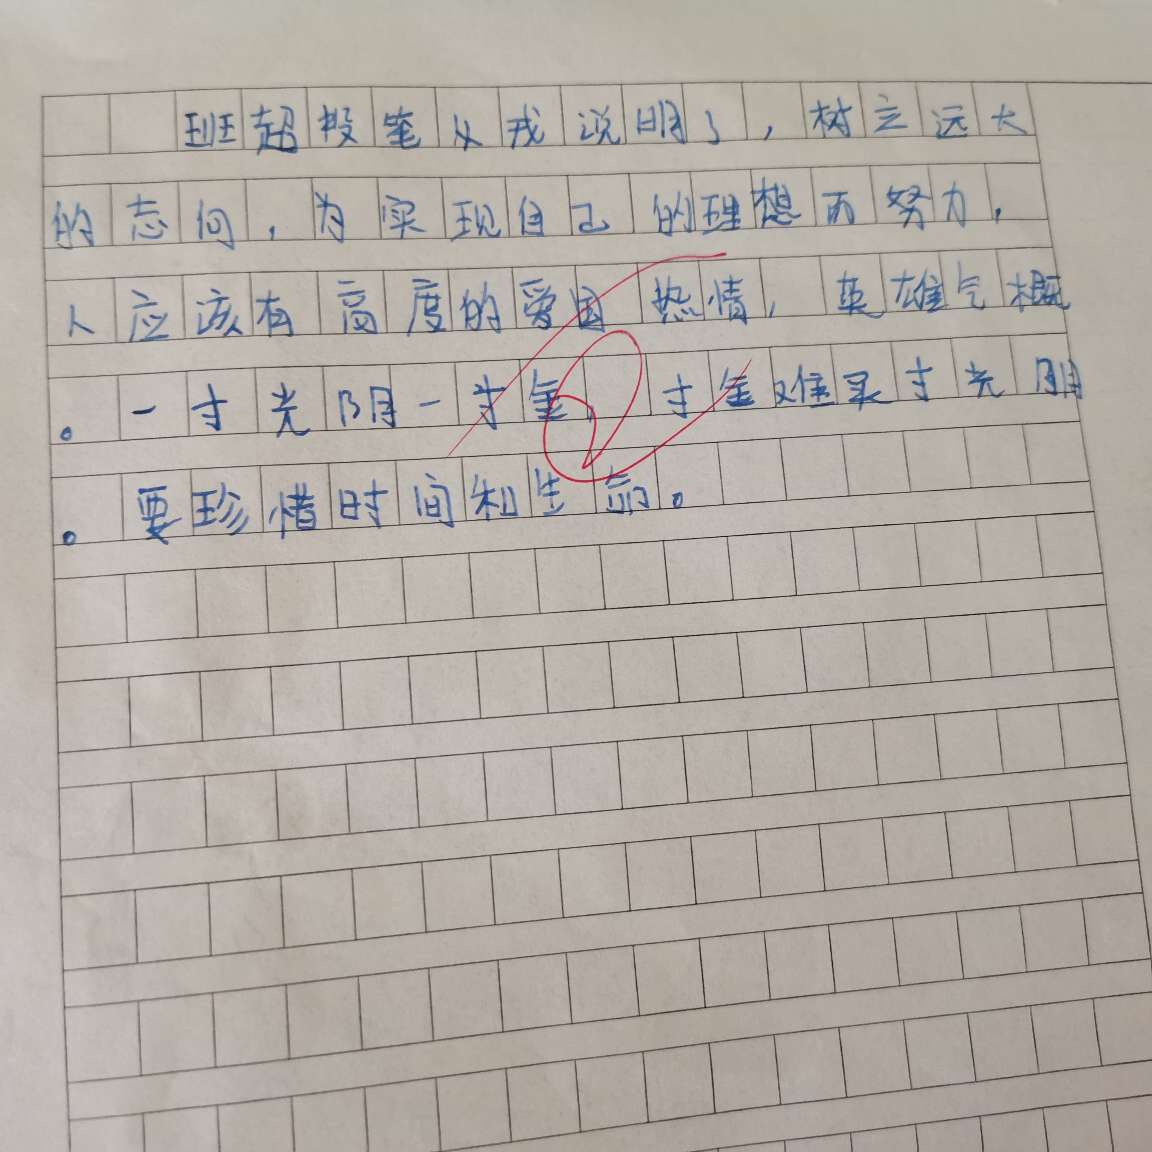 班超投笔从戎说明了，树立远大
的志向，为实现自己的理想而努力，
人应该有高度的爱国热情，英雄气概
。一寸光阴一寸金，寸金难买寸光阴
。要珍惜时间和生命。